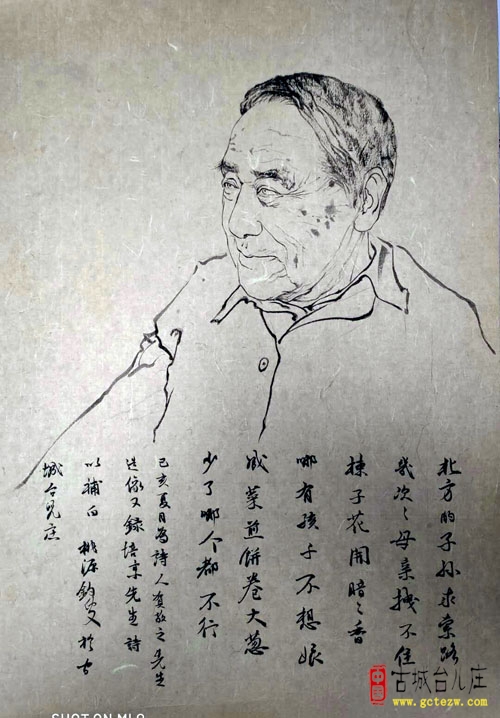 北方的子孙求索路
几次之母亲拽不住
楝子花开暗之香
哪有孩子不想娘
咸菜煎饼卷大葱
少了哪个都不行
己亥夏月为詩人贺敬之先生
造像又録培京先生詩
以補白 桃源钓叟 於古
城台兒庄
中国
古城台儿庄
www.gctezw.com
SHOT ON MI 9